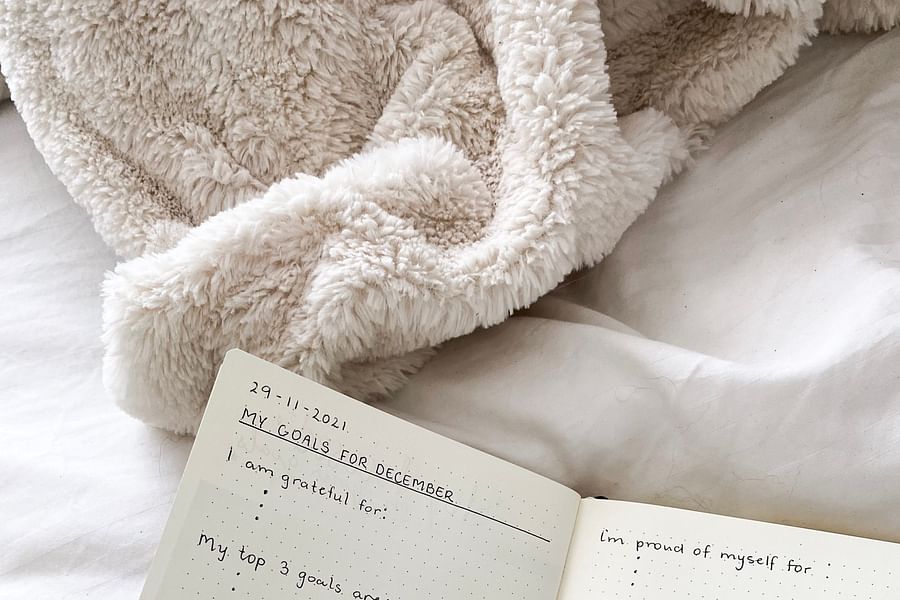 29-11-2021
MY GOALS FOR DECEMBER
I am grateful for:
My top 3 goals are
im proud of myself for :